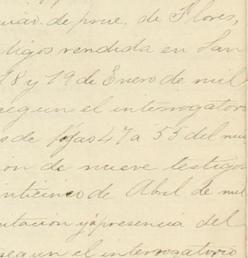 de prue, de Flores,
tigos rendida en San
18 y 19 de Enero de mil
segun el interrogatori
s de fojas 47 a 55 del mis
ion de nueve testigos
inticinco de Abril de mil
utacion y a presencia del
segun el interrogatorio